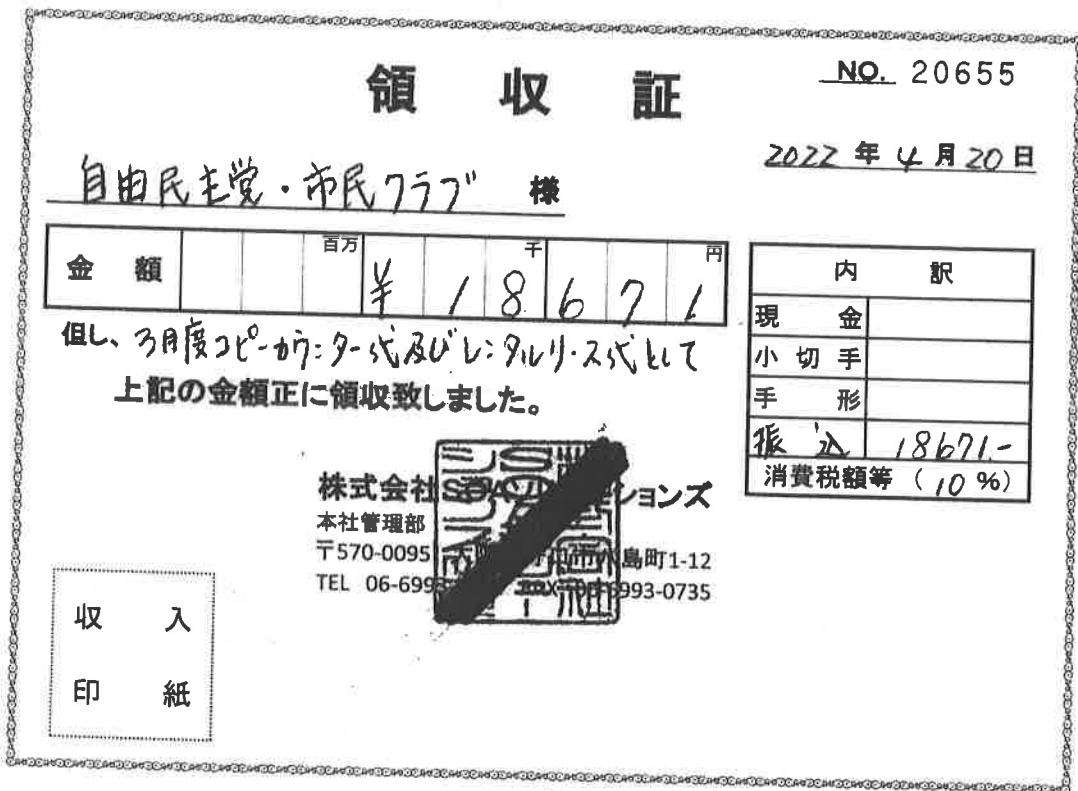 領収証
NO. 20655
2022年4月20日
自由民主党・市民クラブ 様
金額 百万 千 円
¥18671
但し、3月度コピーカウンター代及びレンタルリース代として
上記の金額正に領収致しました。
内訳
現金
小切手
手形
振込 18671.-
消費税額等(10%)
株式会社SDAソ ションズ
本社管理部
〒570-0095 大 市八島町1-12
TEL 06-699 993-0735
収入
印紙